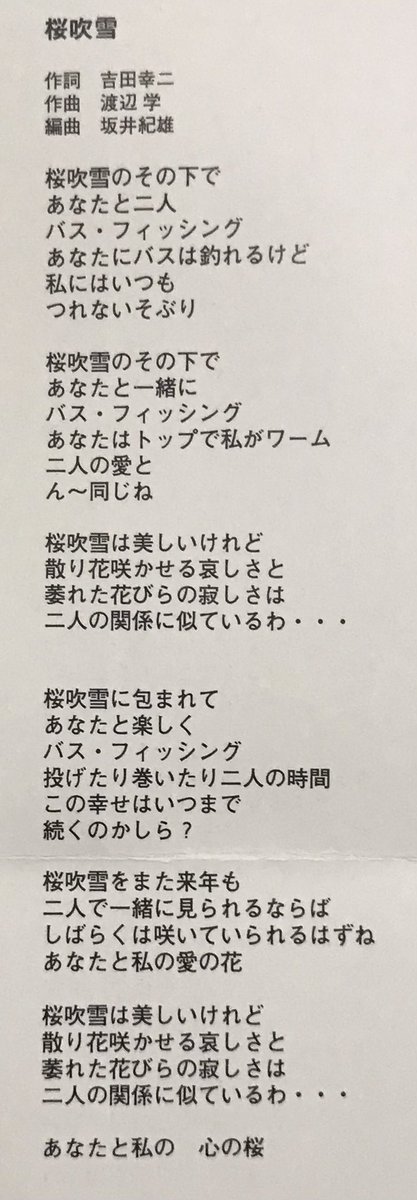 桜吹雪
作詞　吉田幸二
作曲　渡辺 学
編曲　坂井紀雄
桜吹雪のその下で
あなたと二人
バス・フィッシング
あなたにバスは釣れるけど
私にはいつも
つれないそぶり
桜吹雪のその下で
あなたと一緒に
バス・フィッシング
あなたはトップで私がワーム
二人の愛と
ん〜同じね
桜吹雪は美しいけれど
散り花咲かせる哀しさと
萎れた花びらの寂しさは
二人の関係に似ているわ・・・
桜吹雪に包まれて
あなたと楽しく
バス・フィッシング
投げたり巻いたり二人の時間
この幸せはいつまで
続くのかしら？
桜吹雪をまた来年も
二人で一緒に見られるならば
しばらくは咲いていられるはずね
あなたと私の愛の花
桜吹雪は美しいけれど
散り花咲かせる哀しさと
萎れた花びらの寂しさは
二人の関係に似ているわ・・・
あなたと私の　心の桜